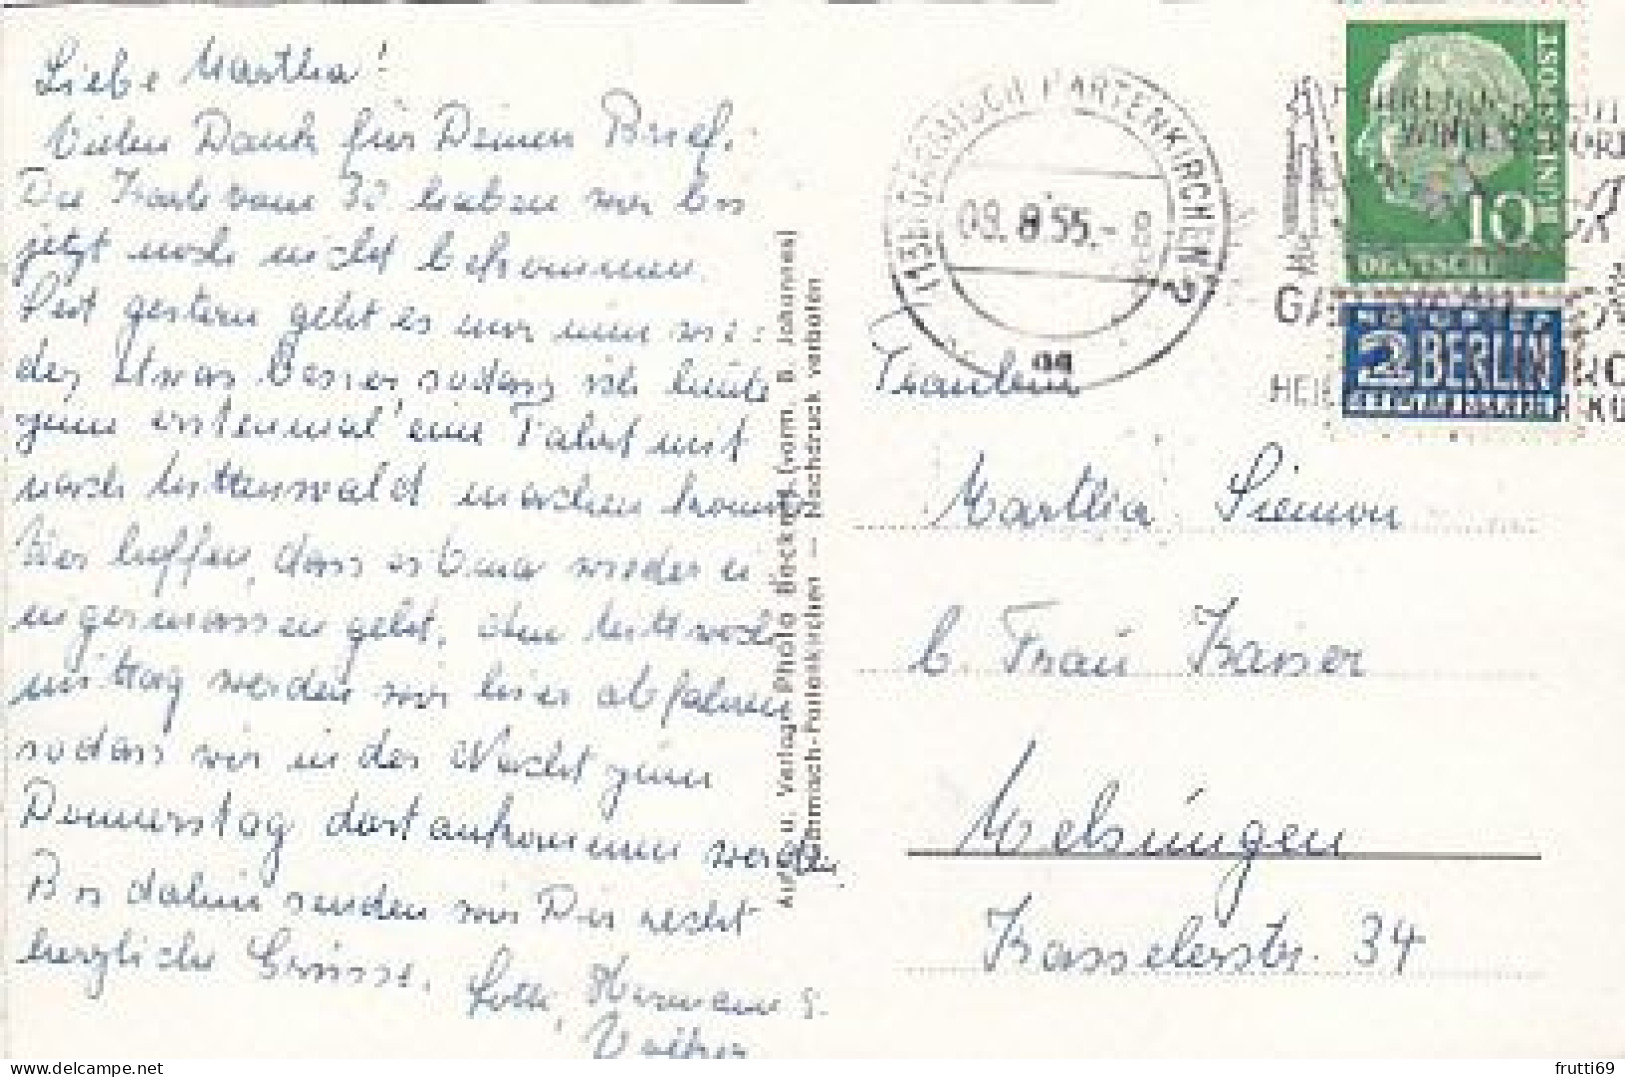 Liebe Martha!
Vielen Dank für Deinen Brief.
Die Karte vom 30 haben wir bis
jetzt noch nicht bekommen.
Seit gestern geht es mir nun wie-
der etwas besser, sodass ich heute
zum erstenmal eine Fahrt mit
nach Mittenwald machen konnte
Wir hoffen, dass es Oma wieder ei
nigermassen geht. Am Mittwoch
mittag werden wir hier abfahren
sodass wir in der Nacht zum
Donnerstag dort ankommen werden.
Bis dahin senden wir Dir recht
herzliche Grüsse. Lotte, Hermann
Aufn. u. Verlag: Photo Beckert (vorm. B. Johannes)
Garmisch-Partenkirchen — Nachdruck verboten
(13b) GARMISCH PARTENKIRCHEN 2
09. 8 55.- 8
WINTERSPORT
10
BUNDESPOST
DEUTSCHE
NOTOPFER
2 BERLIN
STEUERMARKE
Fräulein
Martha Siemon
b. Frau Kaiser
Melsungen
Kasselerstr. 34
frutti69